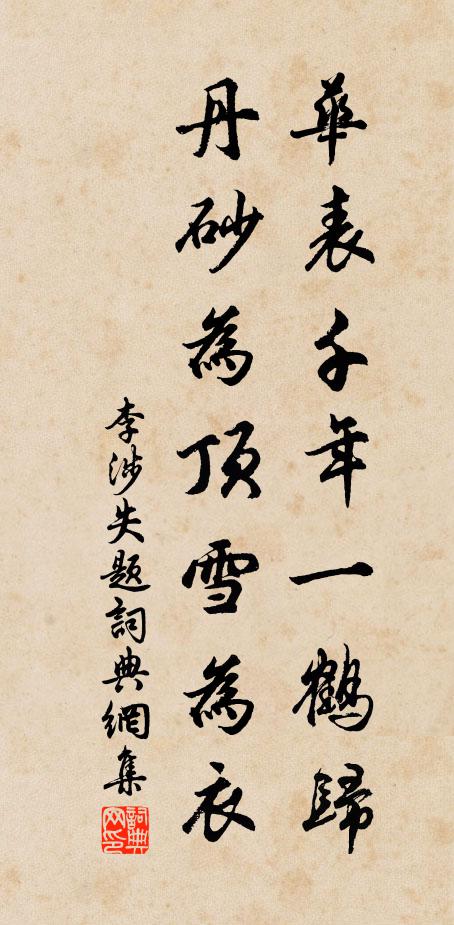 華表千年一鶴歸
丹砂為頂雪為衣
李涉失題詞典網集
詞典网印